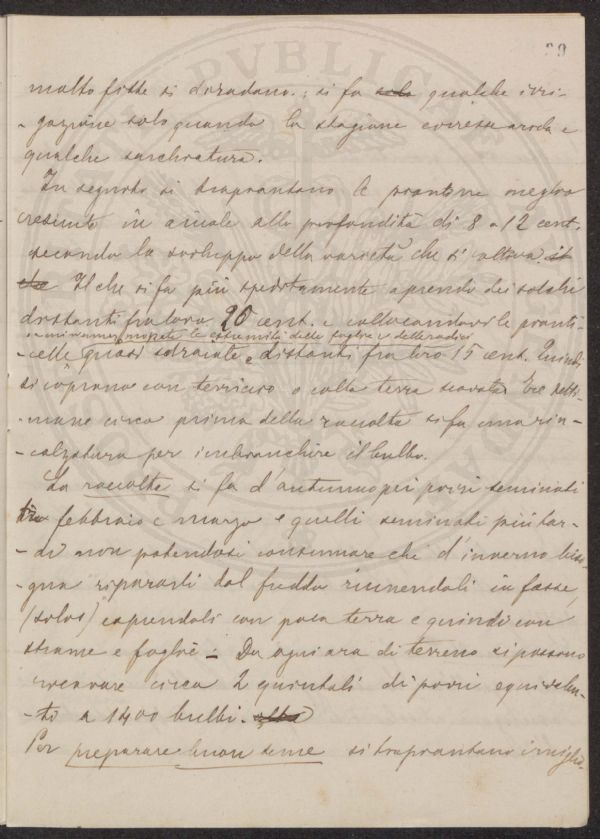 molto fitte si diradano; si fa solo qualche irri-
-gazione solo quando la stagione corresse arida e
qualche sarchiatura.
In seguito si trapiantano le piantine meglio
cresciute in aiuole alla profondità di 8 a 12 cent.
secondo lo sviluppo della varietà che si coltiva.
Il che si fa più speditamente aprendo dei solchi
distanti fra loro 20 cent. e collocandovi le pianti-
le estremità delle foglie e delle radici
-celle quasi sdraiate e distanti fra loro 15 cent. Quindi
si coprano con terriccio o colla terra scavata. Tre setti-
mane circa prima della raccolta si fa una rin-
-calzatura per imbianchire il bulbo.
La raccolta si fa d'autunno pei porri seminati
in febbraio e marzo e quelli seminati più tar-
-di non potendosi consumare che d'inverno biso-
gna ripararli dal freddo riunendoli in fosse,
(solos) coprendoli con poca terra e quindi con
strame e foglie - Da ogni ara di terreno si possono
ricavare circa 2 quintali di porri equivalen-
-ti a 1400 bulbi.
Per preparare buon seme si trapiantano i miglio-